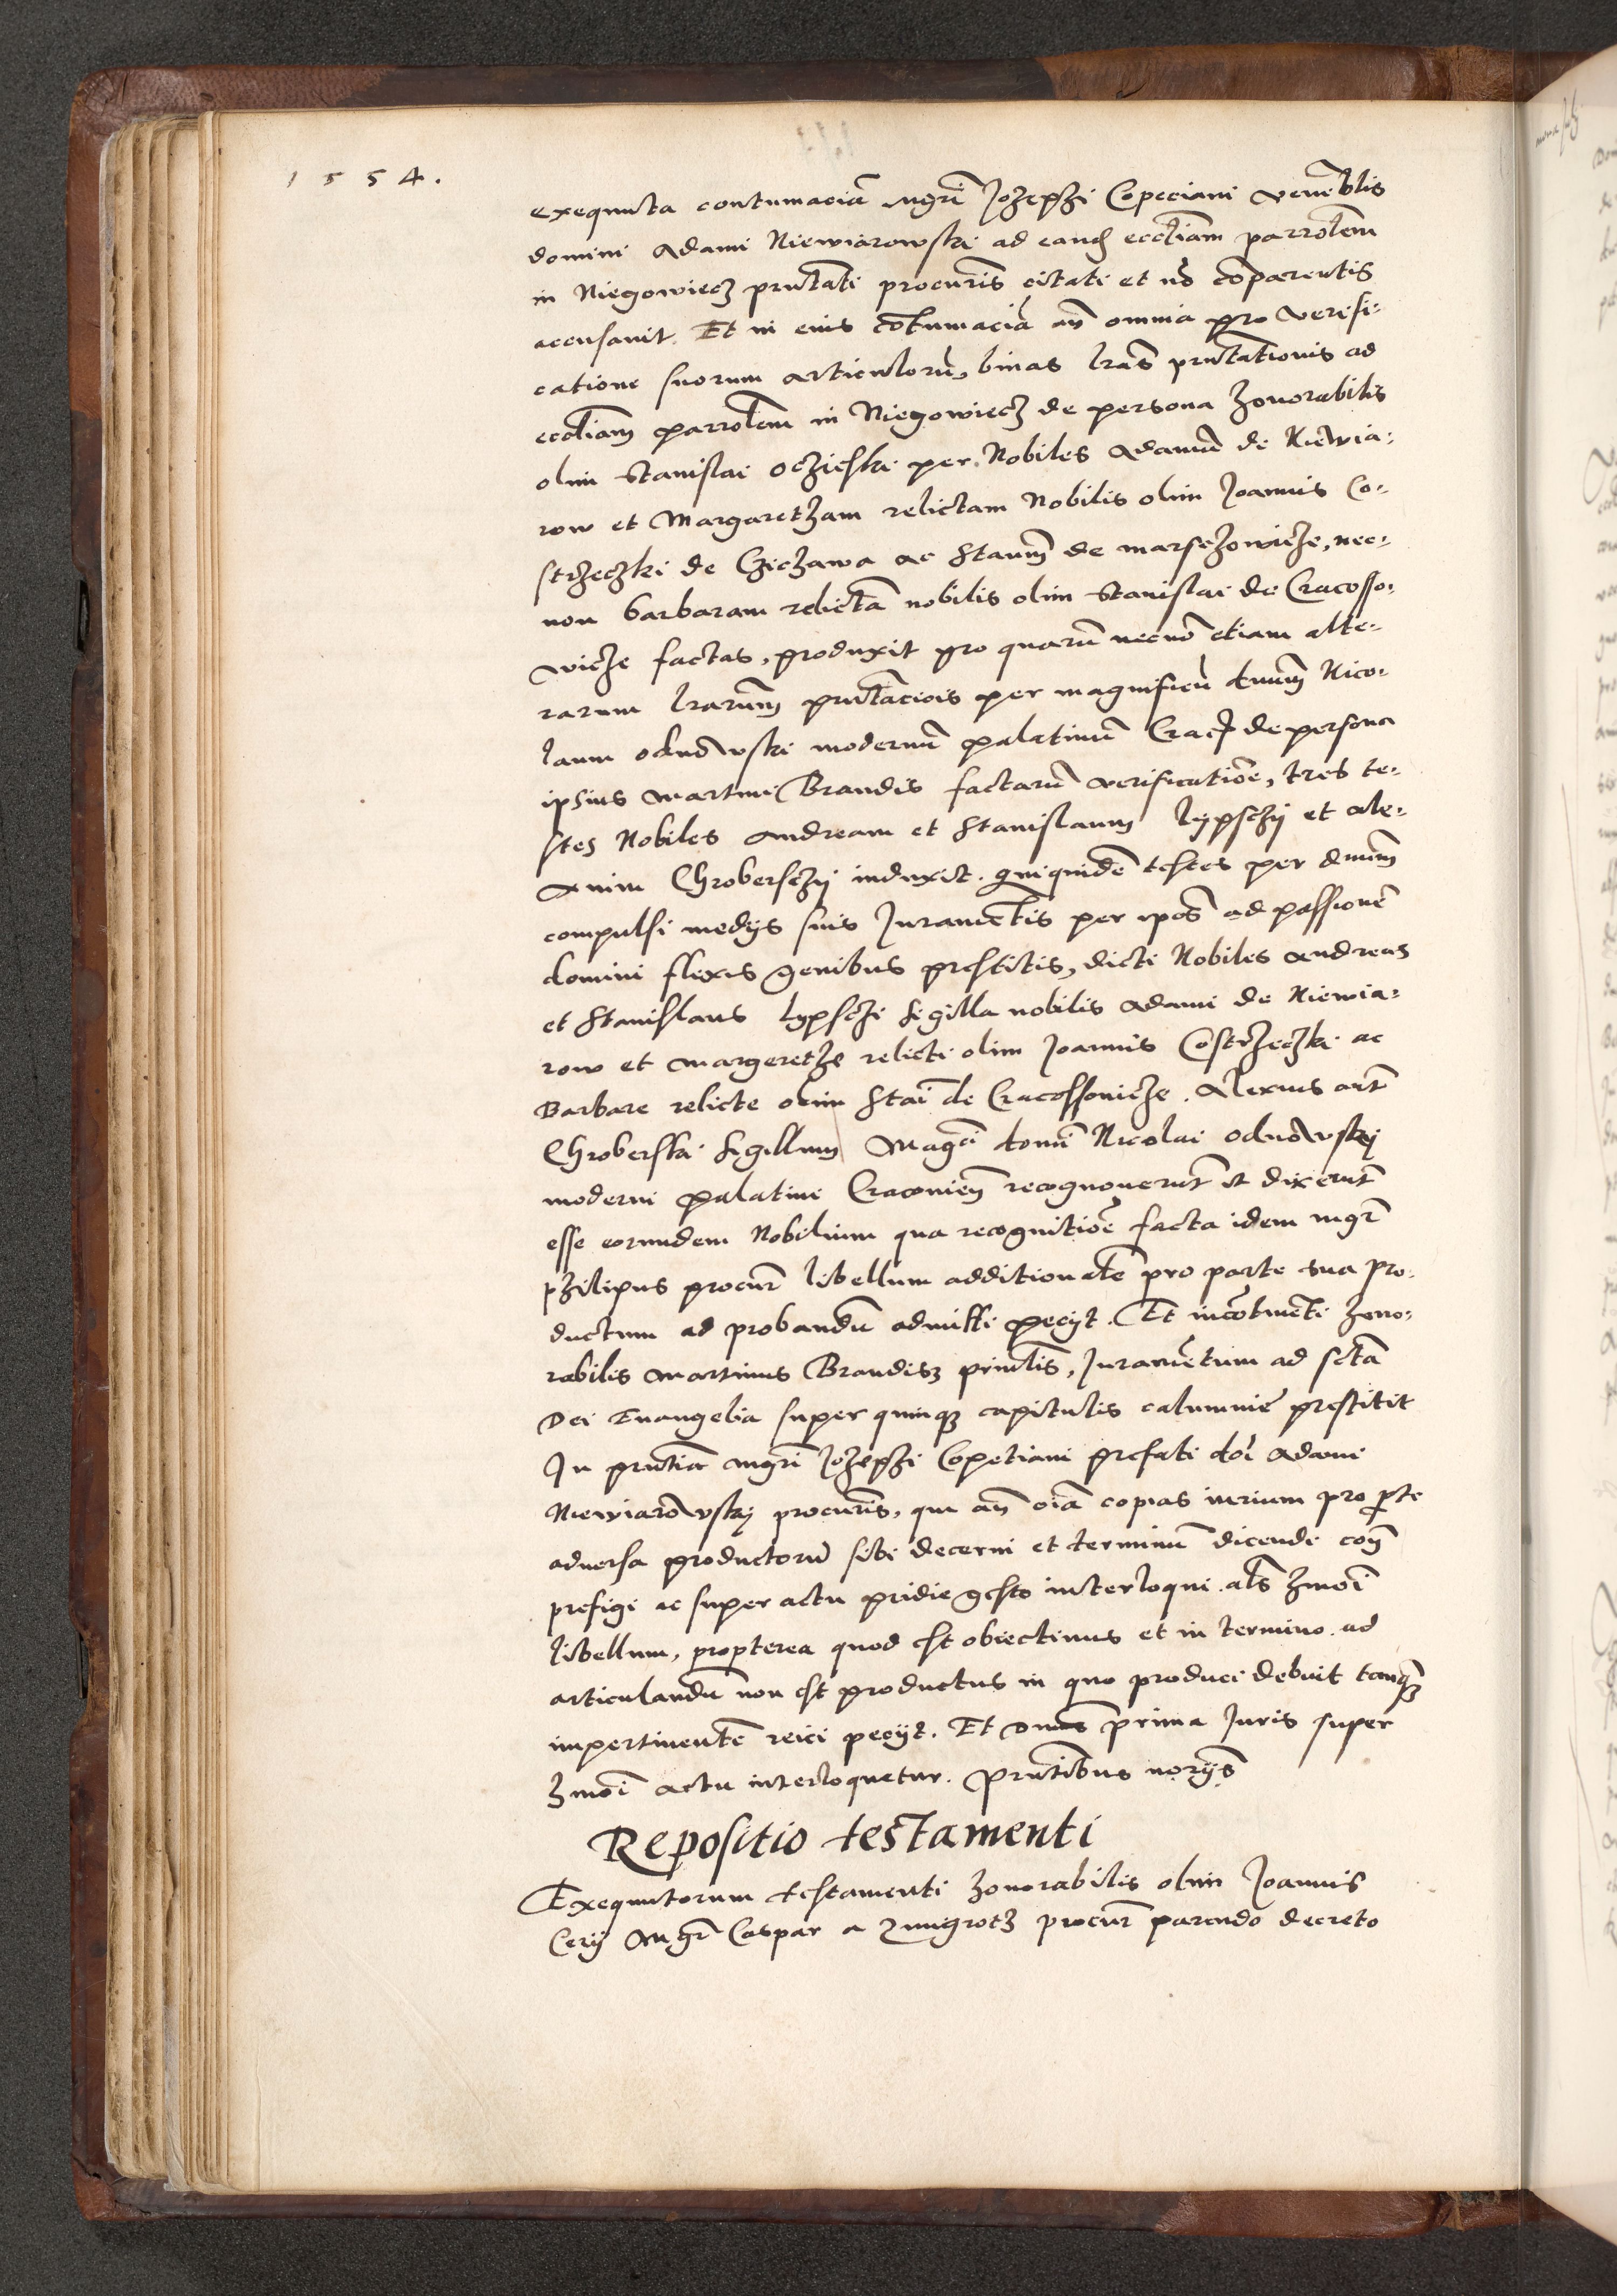 1554.
exequuta contumaciā mgri Jozephi Copeciani veneblis
domini Adami Niewiarowski ad eand ecctiam parrolem
in Niegowiecz prntati procuris citati et nō cōparentis
accusauit. Et in eius cōtumaciā añ omnia pro verifi:
catione suorum articulorū, binas lras prntationis ad
ecctiam parrolem in Niegowiecz de persona honorabilis
olim Stanislai Oczieski per Nobiles Adamū de Niewia:
row et Margaretham relictam Nobilis olim Joannis Co:
strzeczki de Cziczawa ac Staum de marsczowicze, nec:
non barbaram relictā nobilis olim Stanislai de Cracosso:
wicze factas, produxit pro quarū necnō etiam alte:
rarum lrarum prntaciois per magnificū dnum Nico:
laum odnowski modernū palatinū Crac de persona
ipsius martini Brandis factarū verificatiōe, tres te:
stes Nobiles Andream et Stanislaum lypschy et Ale:
xium Chroberschy induxit. quiquidē testes per dnum
compulsi medys suis Juramētis per ipos ad passionē
domini flexis genibus prestitis, dicti Nobiles Andreas
et Stanislaus lypschi sigilla nobilis Adami de Niewia:
row et margarethe relicte olim Joannis Costrzeczki ac
Barbare relicte olim Stai de Cracossowicze. Alexius aut
Chroberski sigillum Magci domi Nicolai odnowskj
moderni palatini Cracouien recognouerūt et dixerūt
esse eorundem Nobilium qua recognitiōe facta idem mgr
philipus procur libellum additionale pro parte sua pro:
ductum ad probandū admitti pecyt. Et incōtinēti hono:
rabilis martinus Brandisz principlis, Juramētum ad sctā
Dei Euangelia super quinqz capitulis calumnie prestitit
In prntia mgri Jozephi Copetiani prefati doi Adami
Niewiarowskj procuris, qui añ oia copias iurium pro pte
aduersa productorū sibi decerni et terminū dicendi con
prefigi ac super actu pridie gesto interloqui. als hmoi
libellum, propterea quod est obiectiuus et in termino ad
articulandū non est productus in quo produci debuit tanqz
impertinentē reici pecyt. Et Dnus prima Juris super
hmoi actu interloquetur. Prntibus norys
Repositio testamenti
Exequutorum testamenti honorabilis olim Joannis
Cery Mgr Caspar a Zmigrotz procur parendo decreto